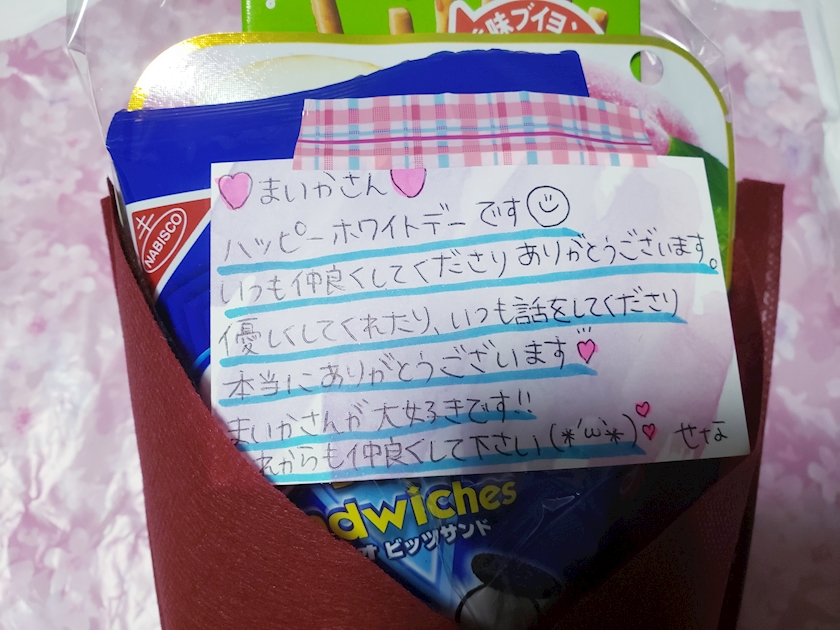 味ブイヨン
NABISCO
まいかさん
ハッピーホワイトデーです
いつも仲良くしてくださり ありがとうございます。
優しくしてくれたり、いつも話をしてくださり
本当にありがとうございます
まいかさんが 大好きです!!
れからも仲良くして下さい(*´ω`*) せな
dwiches
オ ビッツサンド